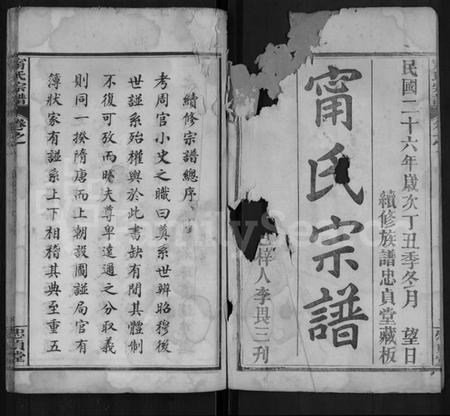 民國二十六年歲次丁丑季冬月 望日
續修族譜忠貞堂藏板
甯氏宗譜
梓人李畏三刊
續修宗譜總序
考周官小史之職曰奠系世辨昭穆後
世諡系殆權輿於此書缺有間其體制
不復可攷而曉夫尊卑遠邇之分取義
則同一揆隋唐而上朝設圖諡局官有
簿狀家有諡系上下相稽其典至重五
甯氏宗譜
卷之
忠貞堂